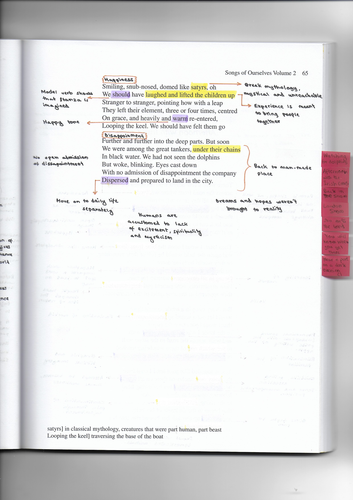 Songs of Ourselves Volume 2 65
Happiness
Smiling, snub-nosed, domed like satyrs, oh
We should have laughed and lifted the children up
Stranger to stranger, pointing how with a leap
They left their element, three or four times, centred
On grace, and heavily and warm re-entered,
Looping the keel. We should have felt them go
Disappointment
Further and further into the deep parts. But soon
We were among the great tankers, under their chains
In black water. We had not seen the dolphins
But woke, blinking. Eyes cast down
With no admission of disappointment the company
Dispersed and prepared to land in the city.
Model verb shows
that stanza is
imagined
Happy tone
No open admission
of disappointment
Greek mythology,
mystical and unreachable
Experience is meant
to bring people
together
Back to man-made
place
Move on to daily life
separately
Humans are
accustomed to lack
of excitement, spirituality
and mythicism
Dreams and hopes weren't
brought to reality
satyrs] in classical mythology, creatures that were part human, part beast
Looping the keel] traversing the base of the boat